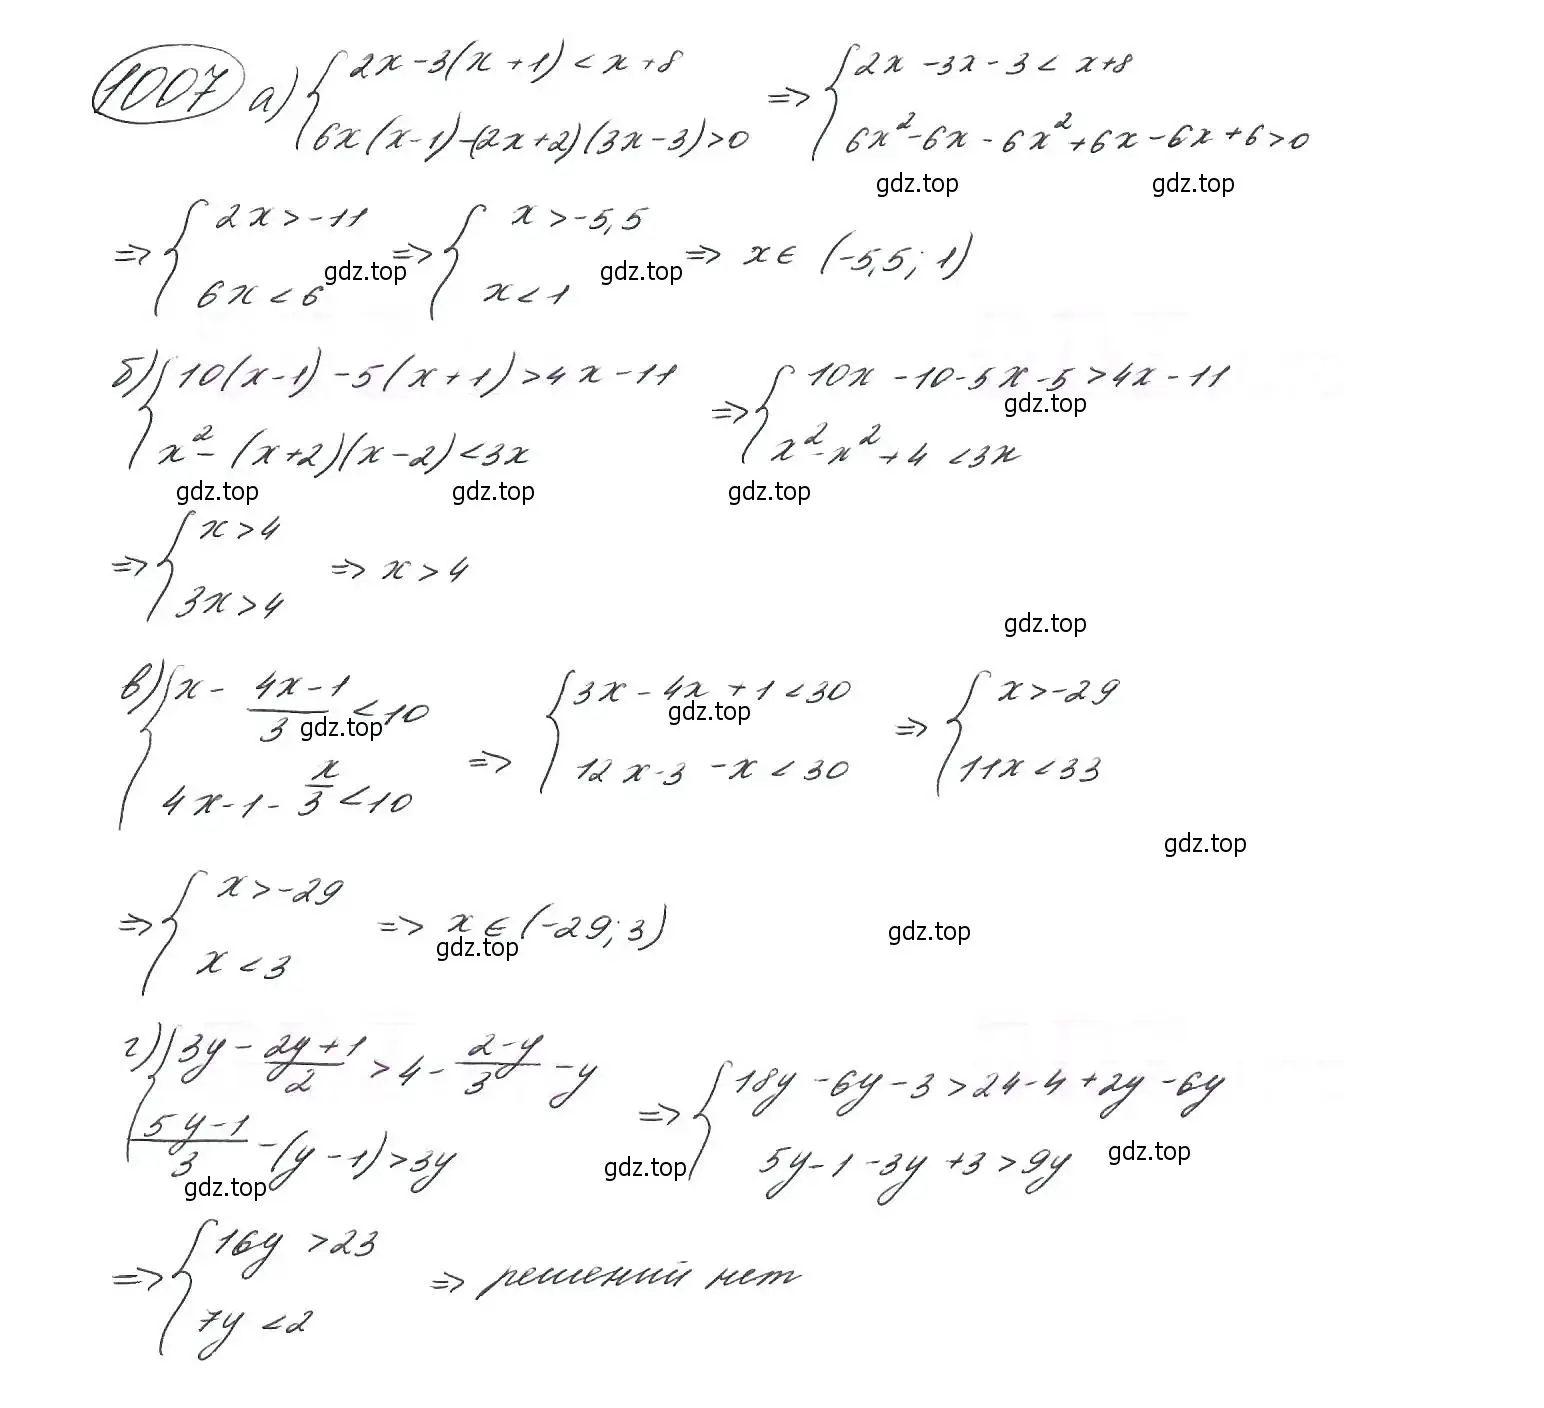 1007 а) { 2x - 3(x + 1) < x + 8 ; 6x(x - 1) - (2x + 2)(3x - 3) > 0 => { 2x - 3x - 3 < x + 8 ; 6x² - 6x - 6x² + 6x - 6x + 6 > 0
gdz.top gdz.top
=> { 2x > -11 ; 6x < 6 => { x > -5,5 ; x < 1 => x ∈ (-5,5; 1)
gdz.top gdz.top
б) { 10(x - 1) - 5(x + 1) > 4x - 11 ; x² - (x + 2)(x - 2) < 3x => { 10x - 10 - 5x - 5 > 4x - 11 ; x² - x² + 4 < 3x
gdz.top
gdz.top gdz.top gdz.top
=> { x > 4 ; 3x > 4 => x > 4
gdz.top
в) { x - (4x - 1)/3 < 10 ; 4x - 1 - x/3 < 10 => { 3x - 4x + 1 < 30 ; 12x - 3 - x < 30 => { x > -29 ; 11x < 33
gdz.top gdz.top
gdz.top
=> { x > -29 ; x < 3 => x ∈ (-29; 3)
gdz.top gdz.top
г) { 3y - (2y + 1)/2 > 4 - (2 - y)/3 - y ; (5y - 1)/3 - (y - 1) > 3y => { 18y - 6y - 3 > 24 - 4 + 2y - 6y ; 5y - 1 - 3y + 3 > 9y
gdz.top gdz.top gdz.top
=> { 16y > 23 ; 7y < 2 => решений нет